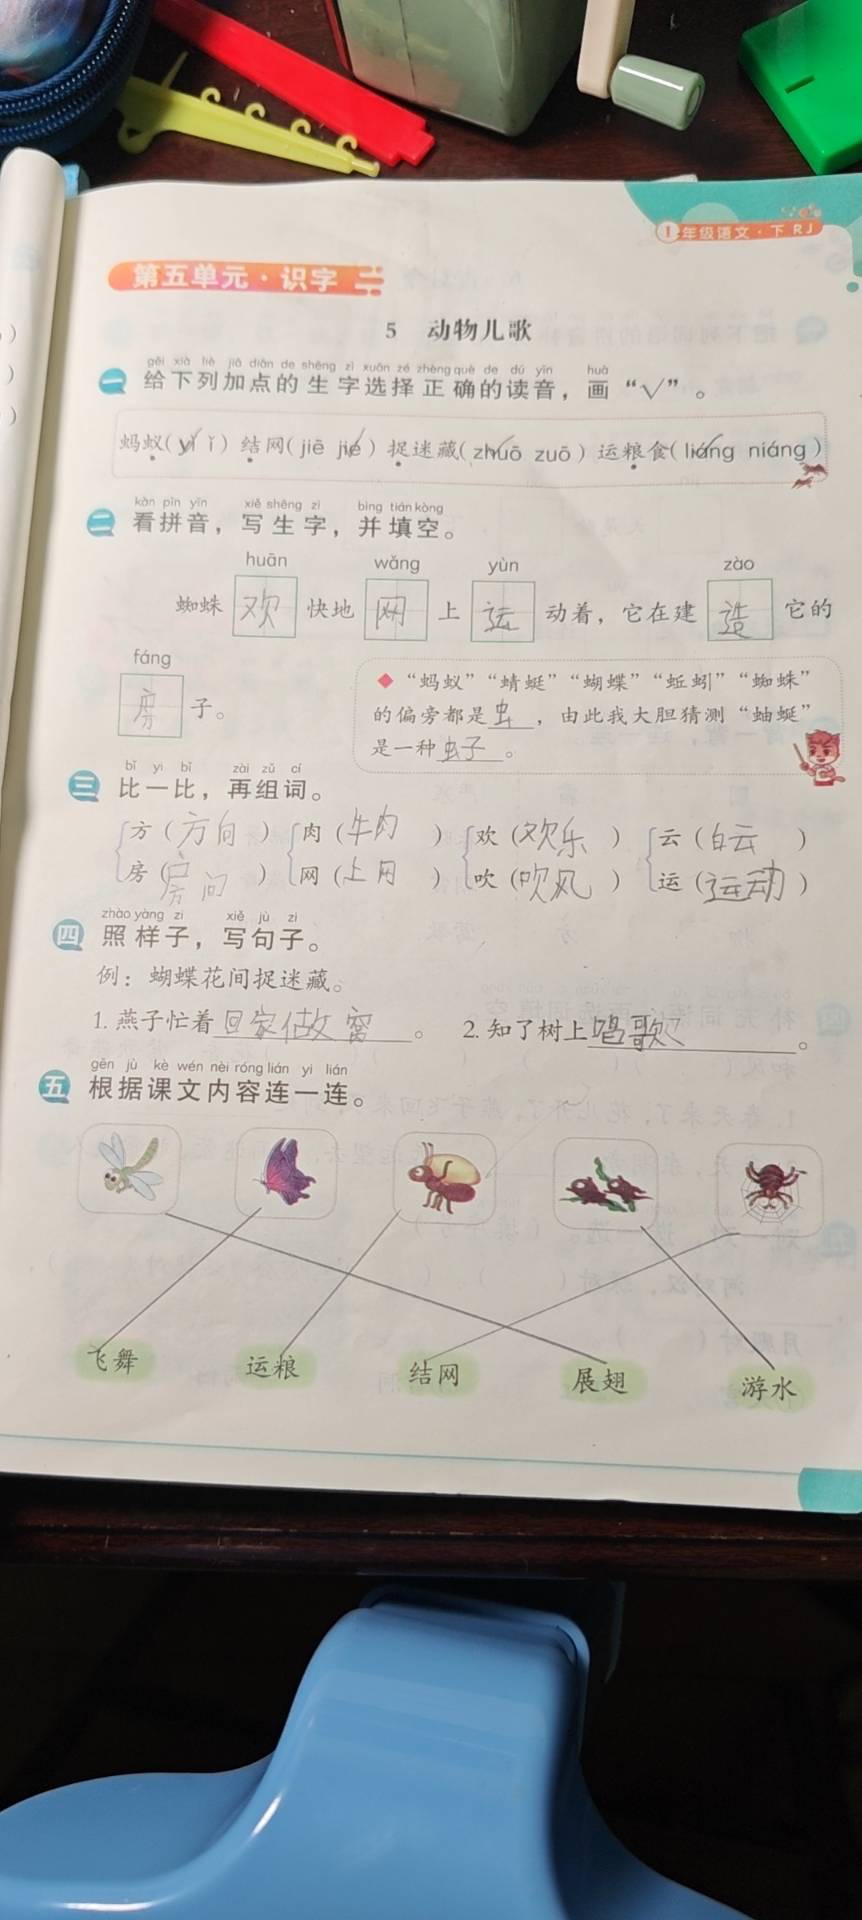 1年级语文·下 RJ
第五单元·识字二
5 动物儿歌
gěi xià liè jiā diǎn de shēng zì xuǎn zé zhèng què de dú yīn huà
一 给下列加点的生字选择正确的读音，画“√”。
蚂蚁(yǐ ǐ) 结网(jiē jié) 捉迷藏(zhuō zuō) 运粮食(liáng niáng)
kàn pīn yīn xiě shēng zì bìng tián kòng
二 看拼音，写生字，并填空。
huān wǎng yùn zào
蜘蛛 欢 快地 网 上 运 动着，它在建 造 它的
fáng
房 子。
◆“蚂蚁”“蜻蜓”“蝴蝶”“蚯蚓”“蜘蛛”
的偏旁都是虫，由此我大胆猜测“蚰蜒”
是一种虫子。
bǐ yi bǐ zài zǔ cí
三 比一比，再组词。
方(方向) 肉(牛肉) 欢(欢乐) 云(白云)
房(房间) 网(上网) 吹(吹风) 运(运动)
zhào yàng zi xiě jù zi
四 照样子，写句子。
例：蝴蝶花间捉迷藏。
1. 燕子忙着回家做窝。 2. 知了树上唱歌。
gēn jù kè wén nèi róng lián yi lián
五 根据课文内容连一连。
飞舞 运粮 结网 展翅 游水